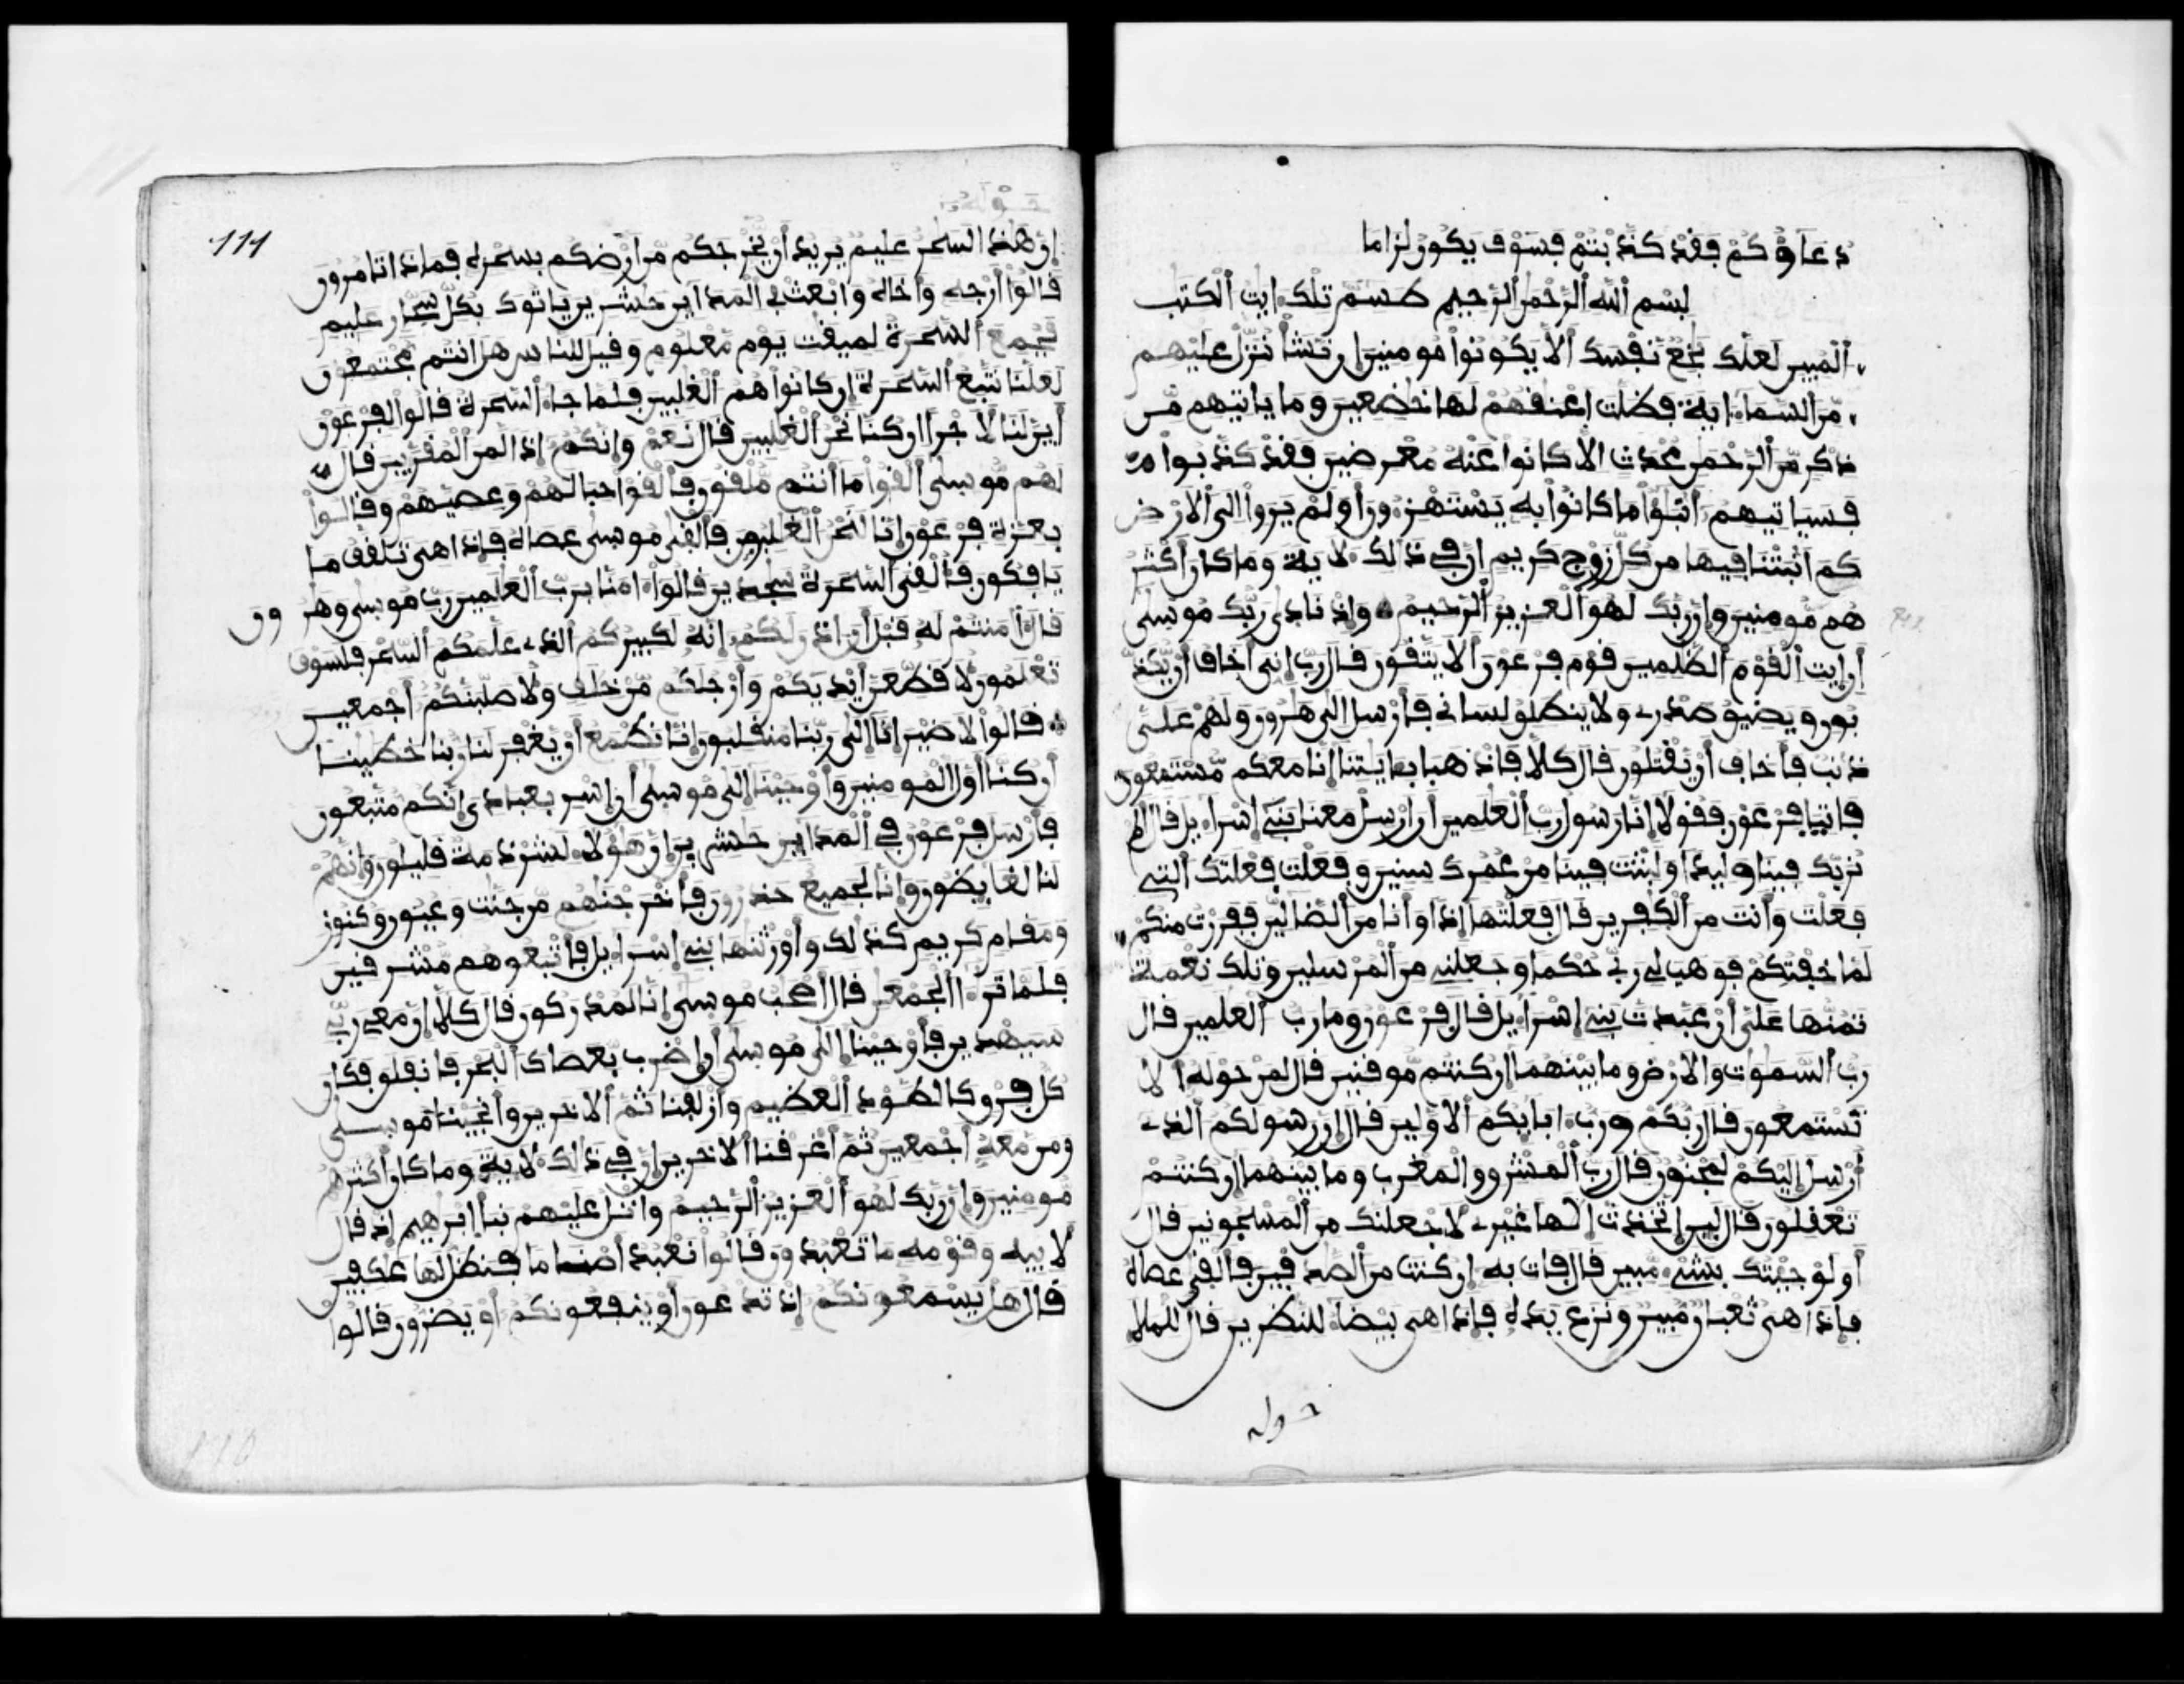 دعاؤكم فقد كذبتم فسوف يكون لزاما
بسم الله الرحمن الرحيم طسم تلك ايت الكتب
المبين لعلك بخع نفسك ألا يكونوا مومنين إن نشأ ننزل عليهم
من السماء اية فظلت اعنقهم لها خضعين وما ياتيهم من
ذكر من الرحمن محدث الا كانوا عنه معرضين فقد كذبوا
فسياتيهم أنبؤا ما كانوا به يستهزءون أولم يروا الى الارض
كم انبتنا فيها من كل زوج كريم ان في ذالك لاية وما كان أكثر
هم مومنين وإن ربك لهو العزيز الرحيم وإذ نادى ربك موسى
أن ايت القوم الظلمين قوم فرعون ألا يتقون قال رب إني أخاف أن يكذ
بون ويضيق صدري ولا ينطلق لساني فأرسل الى هرون ولهم على
ذنب فأخاف أن يقتلون قال كلا فاذهبا بايتنا إنا معكم مستمعون
فاتيا فرعون فقولا إنا رسول رب العلمين أن ارسل معنا بني إسراءيل قال الم
نربك فينا وليدا ولبثت فينا من عمرك سنين وفعلت فعلتك التي
فعلت وأنت من الكفرين قال فعلتها إذا وأنا من الضالين ففررت منكم
لما خفتكم فوهب لي ربي حكما وجعلني من المرسلين وتلك نعمة
تمنها علي أن عبدت بني إسراءيل قال فرعون وما رب العلمين قال
رب السموت والارض وما بينهما إن كنتم موقنين قال لمن حوله ألا
تستمعون قال ربكم ورب ءابايكم الاولين قال إن رسولكم الذي
أرسل إليكم لمجنون قال رب المشرق والمغرب وما بينهما إن كنتم
تعقلون قال لين اتخذت إلها غيري لأجعلنك من المسجونين قال
أولو جيتك بشيء مبين قال فات به إن كنت من الصدقين فألقى عصاه
فإذا هي ثعبان مبين ونزع يده فإذا هي بيضاء للنظرين قال للملإ
حوله
حوله
111
إن هذا لسحر عليم يريد أن يخرجكم من أرضكم بسحره فماذا تامرون
قالوا أرجه وأخاه وابعث في المداين حشرين ياتوك بكل سحار عليم
فجمع السحرة لميقت يوم معلوم وقيل للناس هل انتم مجتمعون
لعلنا نتبع السحرة إن كانوا هم الغلبين فلما جاء السحرة قالوا لفرعون
أين لنا لأجرا إن كنا نحن الغلبين قال نعم وإنكم إذا لمن المقربين قال
لهم موسى ألقوا ما أنتم ملقون فألقوا حبالهم وعصيهم وقالوا
بعزة فرعون إنا لنحن الغلبون فألقى موسى عصاه فإذا هي تلقف ما
يافكون فألقى السحرة سجدين قالوا ءامنا برب العلمين رب موسى وهرون
قال ءامنتم له قبل أن ءاذن لكم إنه لكبيركم الذي علمكم السحر فلسوف
تعلمون لأقطعن أيديكم وأرجلكم من خلف ولأصلبنكم أجمعين
قالوا لا ضير إنا إلى ربنا منقلبون إنا نطمع أن يغفر لنا ربنا خطينا
أن كنا أول المومنين وأوحينا إلى موسى أن اسر بعبادي إنكم متبعون
فأرسل فرعون في المداين حشرين إن هؤلاء لشرذمة قليلون وإنهم
لنا لغايظون وإنا لجميع حذرون فأخرجنهم من جنت وعيون وكنوز
ومقام كريم كذلك وأورثنها بني إسراءيل فأتبعوهم مشرقين
فلما ترءا الجمعن قال أصحب موسى إنا لمدركون قال كلا إن معي ربي
سيهدين فأوحينا إلى موسى أن اضرب بعصاك البحر فانفلق فكان
كل فرق كالطود العظيم وأزلفنا ثم الاخرين وأنجينا موسى
ومن معه أجمعين ثم أغرقنا الاخرين إن في ذالك لاية وما كان أكثرهم
مومنين وإن ربك لهو العزيز الرحيم واتل عليهم نبأ إبرهيم إذ قال
لابيه وقومه ما تعبدون قالوا نعبد أصناما فنظل لها عكفين
قال هل يسمعونكم إذ تدعون أو ينفعونكم أو يضرون قالوا
110